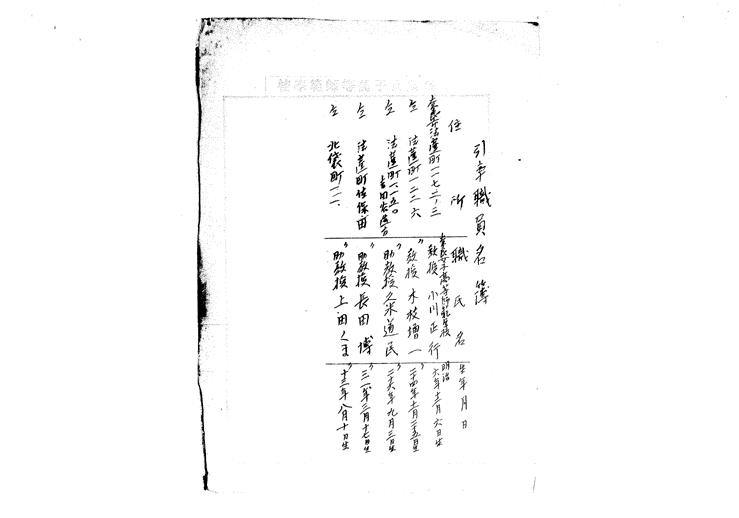 引率職員名簿
住所 職氏名 生年月日
奈良市法蓮町一一七二ノ三 奈良女子高等師範学校 教授 小川正行 明治六年十二月六日生
仝 法蓮町一二二六 〃 教授 木枝増一 〃二十四年十一月二十五日生
仝 法蓮町一一五〇 〃 助教授 久米道民 〃二十六年九月三日生
仝 法蓮町佐保田 〃 助教授 長田博 〃三一年三月十七日生
仝 北袋町一一 〃 助教授 上田くま 〃十三年八月十日生